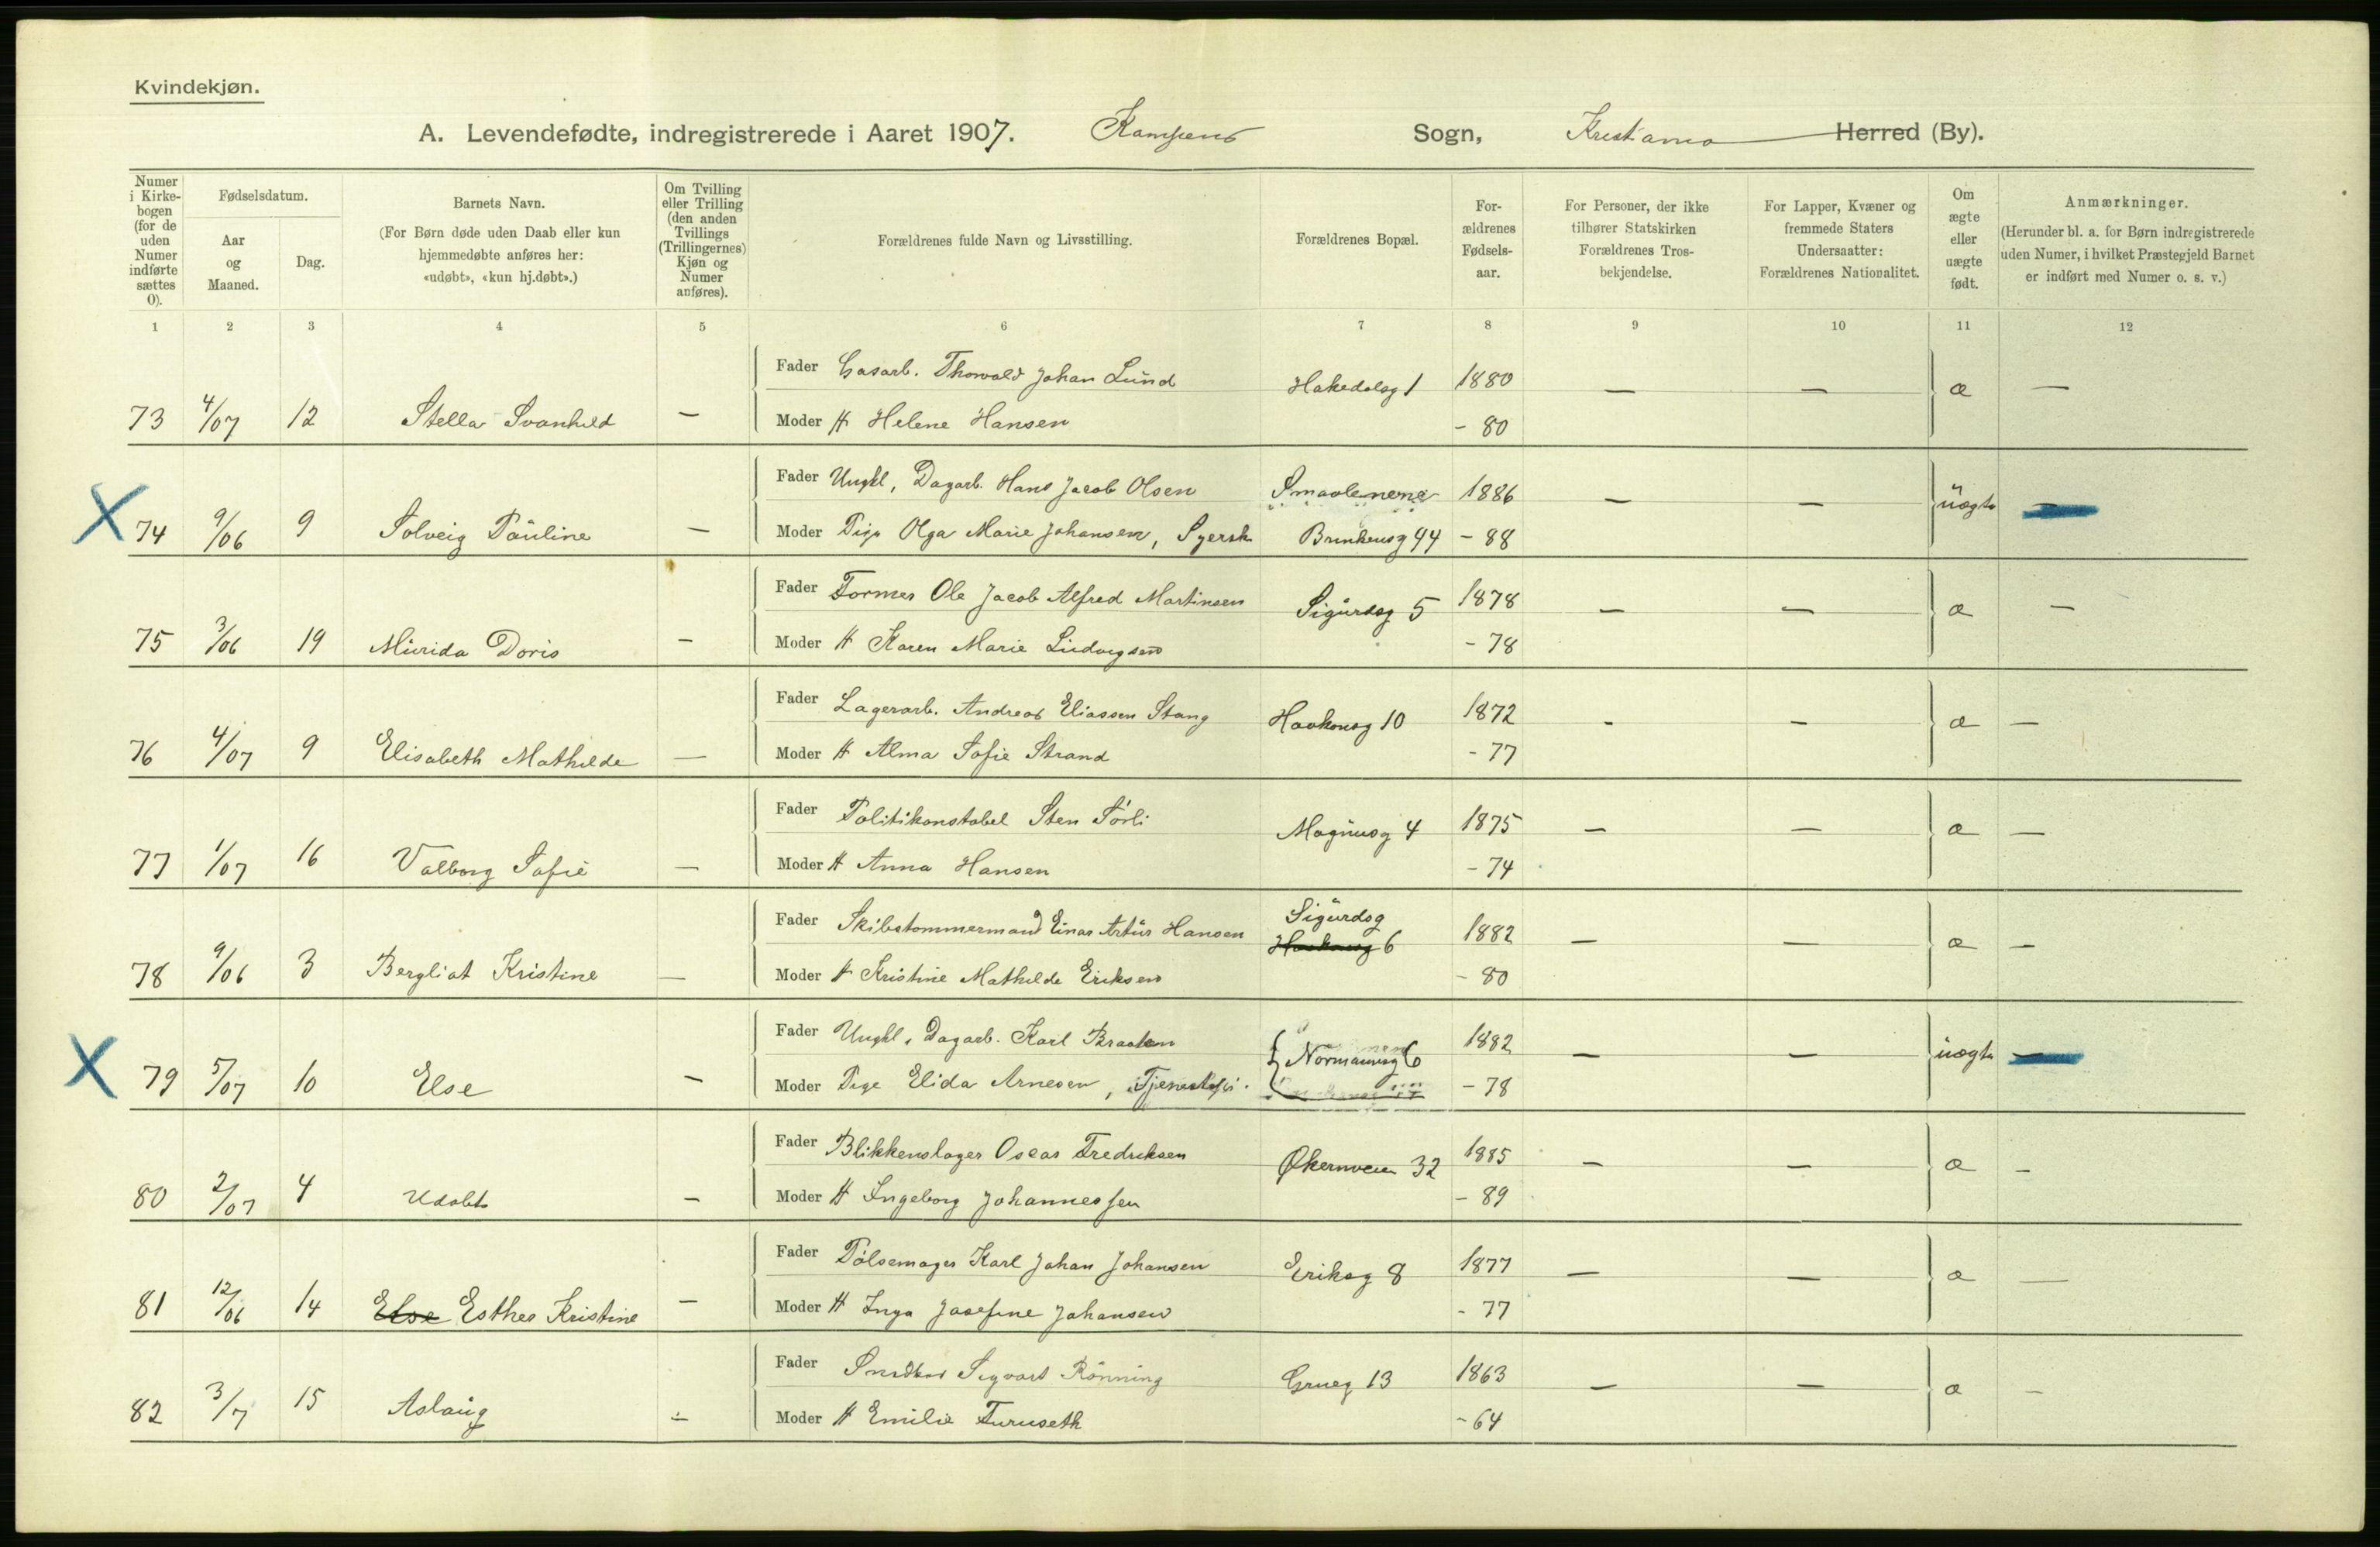 Kvindekjøn.
A. Levendefødte, indregistrerede i Aaret 1907. Kampens Sogn, Kristiania Herred (By).
Numer i Kirke-bogen (for de uden Numer indførte sættes 0).
Fødselsdatum.
Aar og Maaned.
Dag.
Barnets Navn.
(For Børn døde uden Daab eller kun hjemmedøbte anføres her: «udøbt», «kun hj.døbt».)
Om Tvilling eller Trilling (den anden Tvillings (Trillingernes) Kjøn og Numer anføres).
Forældrenes fulde Navn og Livsstilling.
Forældrenes Bopæl.
For-ældrenes Fødsels-aar.
For Personer, der ikke tilhører Statskirken Forældrenes Tros-bekjendelse.
For Lapper, Kvæner og fremmede Staters Undersaatter: Forældrenes Nationalitet.
Om ægte eller uægte født.
Anmærkninger.
(Herunder bl. a. for Børn indregistrerede uden Numer, i hvilket Præstegjeld Barnet er indført med Numer o. s. v.)
1 2 3 4 5 6 7 8 9 10 11 12
Fader Gasarb. Thorvald Johan Lund Hakedalsg 1 1880 — — æ —
73 4/07 12 Stella Svanhild — Moder H Helene Hansen - 80
Fader Ungkl, Dagarb. Hans Jacob Olsen Smaalenene 1886 — — uægte —
X 74 9/06 9 Solveig Pauline — Moder Pige Olga Marie Johansen, Syersk Brinkensg 44 - 88
Fader Former Ole Jacob Alfred Martinsen Sigurdsg 5 1878 — — æ —
75 3/06 19 Murida Doris — Moder H Karen Marie Ludvigsen - 78
Fader Lagerarb. Andreas Eliassen Stang Haakonsg 10 1872 - — æ —
76 4/07 9 Elisabeth Mathilde — Moder H Alma Sofie Strand - 77
Fader Politikonstabel Sten Sørli Magnusg 4 1875 — — æ —
77 1/07 16 Valborg Sofie — Moder H Anna Hansen - 74
Sigurdsg
Fader Skibstømmermand Einar Artur Hansen Haakonsg 6 1882 — — æ —
78 9/06 3 Bergliot Kristine — Moder H Kristine Mathilde Eriksen - 80
Fader Ungkl, Dagarb. Karl Braaten Normannsg 6 1882 — — uægte —
X 79 5/07 10 Else — Moder Pige Elida Arnesen, Tjenestepi. - 78
Fader Blikkenslager Oscar Fredriksen Økernveien 32 1885 — — æ —
80 2/07 4 Udøbt — Moder H Ingeborg Johannessen - 89
Fader Pølsemager Karl Johan Johansen Eriksg 8 1877 — — æ —
81 12/06 14 Else Esther Kristine — Moder H Inga Josefine Johansen - 77
Fader Snedker Sigvart Rønning Grueg 13 1863 — — æ —
82 3/7 15 Aslaug — Moder H Emilie Furuseth - 64